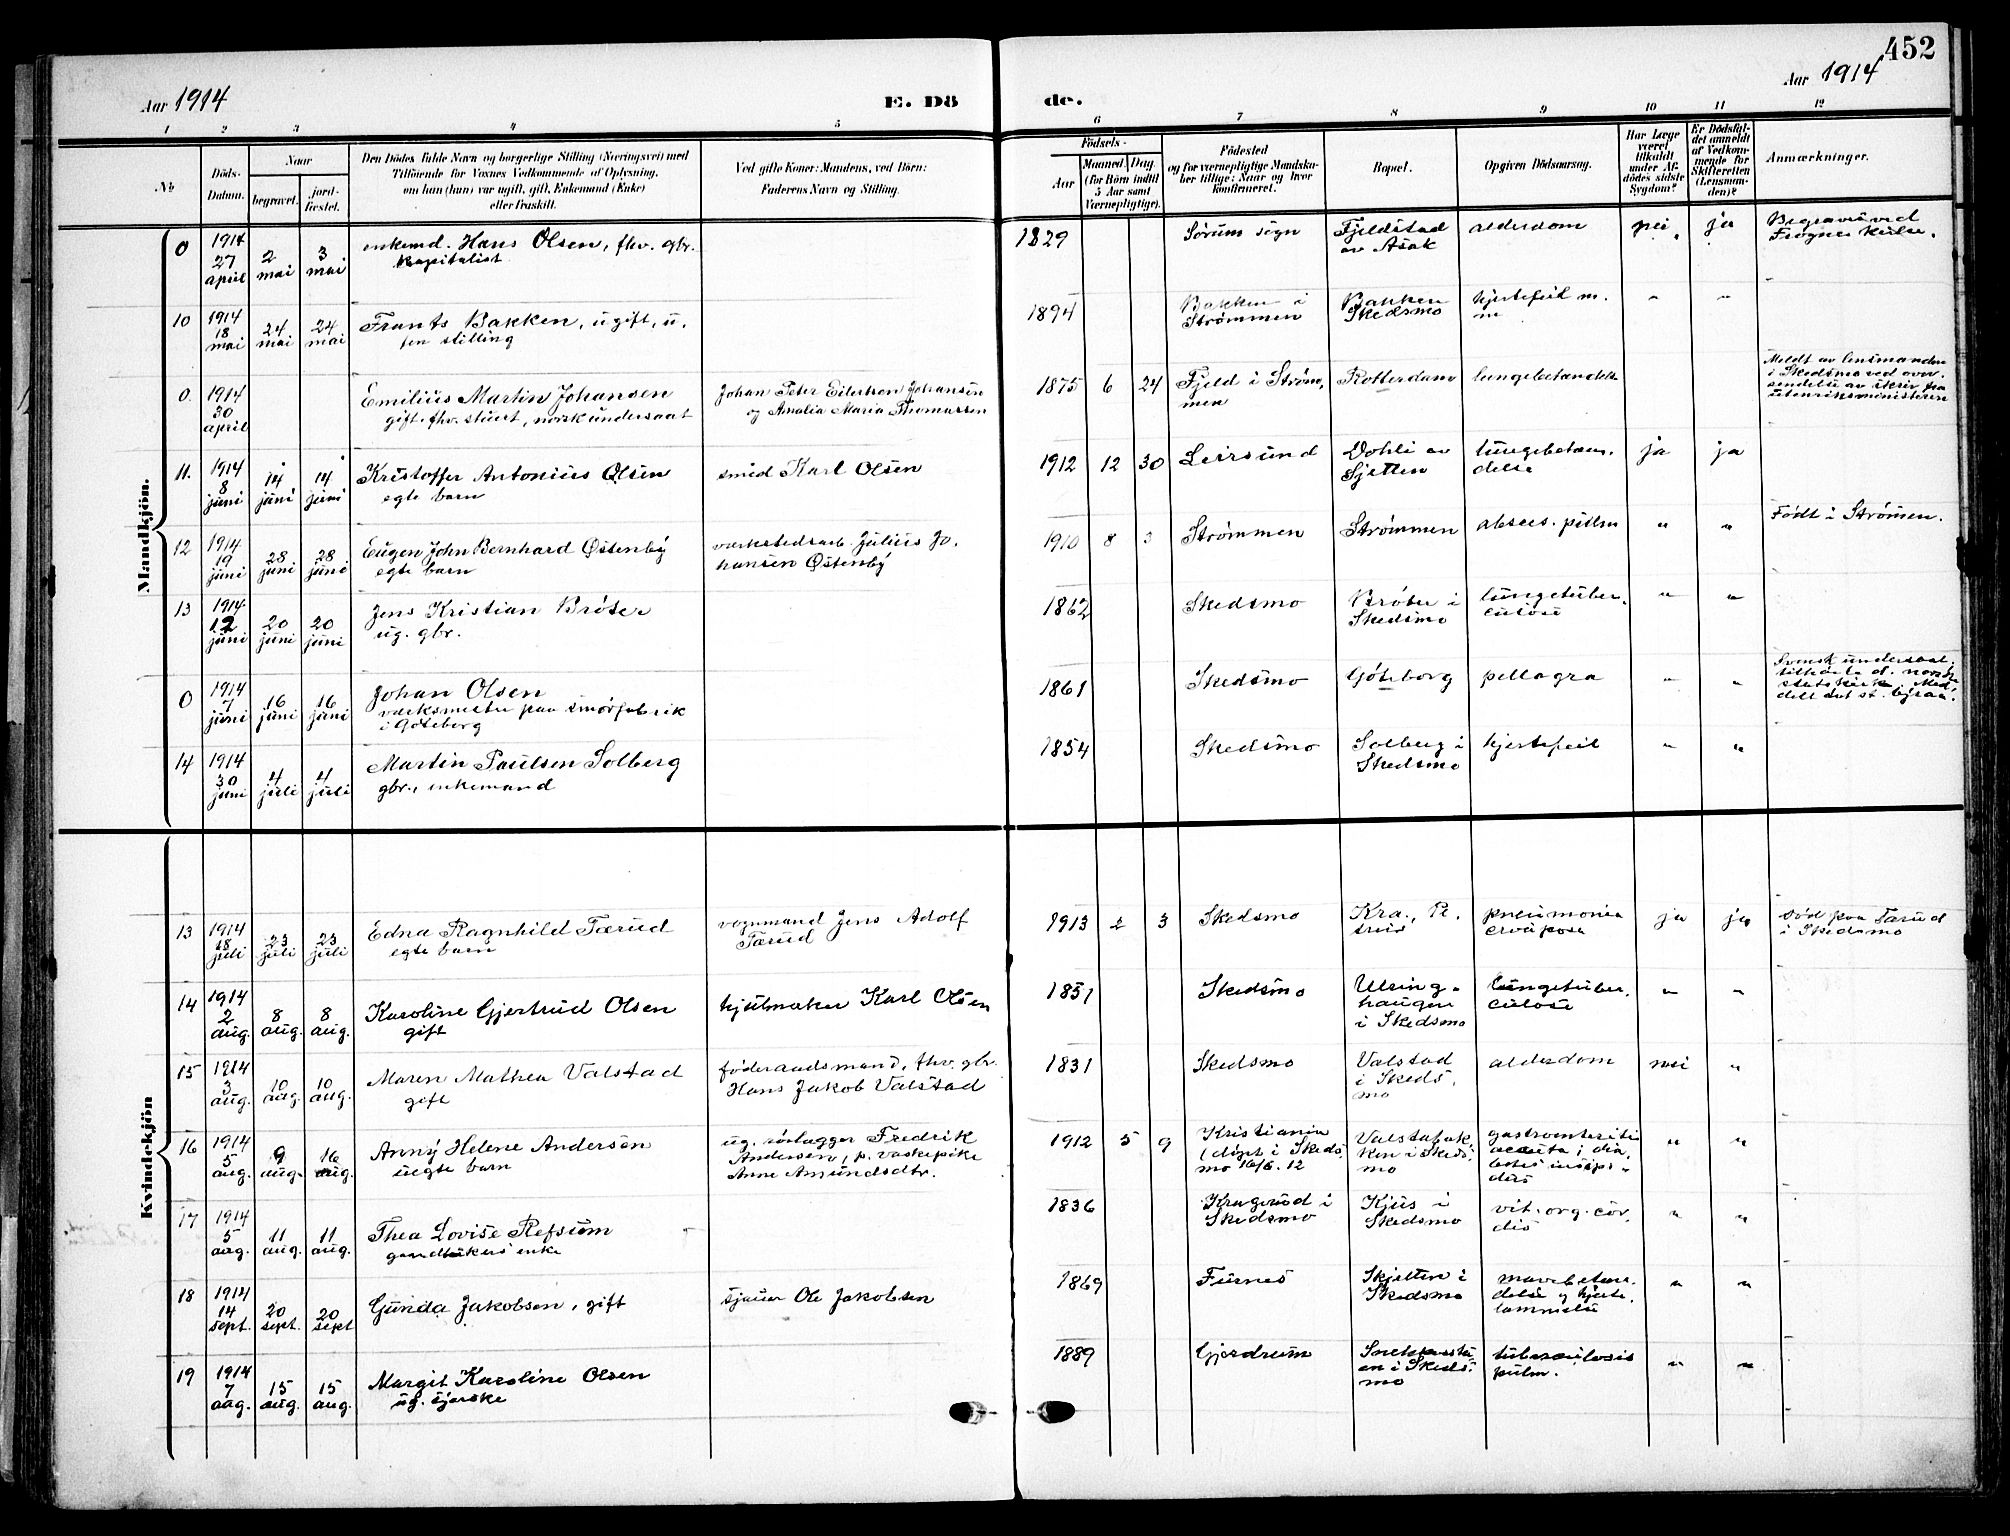 452
Aar 1914
E. Dö
de.
Aar 1914
1 2 3 4 5 6 7 8 9 10 11 12
No
Döds-Datum.
Naar
begravet.
jord-fæstet.
Den Dödes fulde Navn og borgerlige Stilling (Næringsvei) med
Tilföiende for Voxnes Vedkommende af Oplysning,
om han (hun) var ugift, gift, Enkemand (Enke)
eller fraskilt.
Ved gifte Koner: Mandens, ved Börn:
Faderens Navn og Stilling.
Födsels-
Aar
Maaned. Dag.
(for Börn indtil
5 Aar samt
Værnepligtige).
Födested
og for værnepligtige Mandska-
ber tillige: Naar og hvor
konfirmeret.
Bopæl.
Opgiven Dödsaarsag.
Har Læge
været
tilkaldt
under Af-
dödes sidste
Sygdom?
Er Dödsfal-
det anmeldt
af Vedkom-
mende for
Skifteretten
(Lensman-
den)?
Anmærkninger.
Mandkjön.
0 1914 27 april 2 mai 3 mai enkemd. Hans Olsen, fhv. gbr. kapitalist 1829 Sørum sogn Fjeldstad av Asak alderdom nei ja Begraves ved Frogner kirke.
10 1914 18 mai 24 mai 24 mai Frants Bakken, ugift, u. fen stilling 1894 Bakken i Strømmen Bakken Skedsmo hjertefeil m. m „ „
0 1914 30 april Emilius Martin Johansen gift, fhv. stuert, norsk undersaat Johan Peter Eilertsen Johansen og Amalia Maria Thomassen 1875 6 24 Fjeld i Strøm, men Rotterdam lungebetændelse Meldt av lensmanden i Skedsmo ved over. sendelse av skriv. fra utenriksministeren
11. 1914 8 juni 14 juni 14 juni Kristoffer Antonius Olsen egte barn smed Karl Olsen 1912 12 30 Leirsund Vohli av Sjetten lungebetæn, delse ja ja
12 1914 19 juni 28 juni 28 juni Eugen John Bernhard Østenby egte barn værkstedsarb. Julius Jo. hansen Østenby 1910 8 3 Strømmen Strømmen absces. pulm „ „ Født i Strømen.
13 1914 12 juni 20 juni 20 juni Jens Kristian Bröter ug. gbr. 1862 Skedsmo Bröter i Skedsmo lungetuber, culose „ „
0 1914 7 juni 16 juni 16 juni Johan Olsen værksmester paa smörfabrik i Göteborg 1861 Skedsmo Göteborg pellagra „ „ Svensk undersaat. tilhørte d. norske statskirke. Med, delt det st. byraa.
14 1914 30 juni 4 juli 4 juli Martin Paulsen Solberg gbr., enkemand 1854 Skedsmo Solberg i Skedsmo hjertefeil „ „
Kvindekjön
13 1914 18 juli 23 juli 23 juli Edna Ragnhild Tærud egte barn vognmand Jens Adolf Tærud 1913 2 3 Skedsmo Kra., pneumonia ja ja død paa Tærud i Skedsmo
14 1914 2 aug. 8 aug. 8 aug. Karoline Gjertrud Olsen gift hjulmaker Karl Olsen 1851 Skedsmo haugen i Skedsmo lungetuber, culose „ „
15 1914 3 aug. 10 aug. 10 aug. Maren Mathea Valstad gift føderaadsmand, fhv. gbr. Hans Jakob Valstad 1831 Skedsmo Valstad i Skeds, mo alderdom nei „
16 1914 5 aug. 9 aug. 16 aug. Anny Helene Andersen uegte barn ug. rörlægger Fredrik Andersen, p. vaskepike Anne Amundsdtr. 1912 5 9 Kristiania (døpt i Skeds, mo 16/6. 12 Valstabak, ken i Skeds, mo gastroenteritis acuta; dia, betes insipi- dus „ „
17 1914 5 aug. 11 aug. 11 aug. Thea Lovise Refsum gaardbrukers enke 1836 Kragerud i Skedsmo Kjus i Skedsmo vit. org. cor, dis „ „
18 1914 14 sept. 20 sept. 20 sept Gunda Jakobsen, gift sjauer Ole Jakobsen 1869 Furnes Skjetten i Skedsmo mavebetæn. delse og hjerte, lammelse „ „
19 1914 7 aug. 15 aug. 15 aug. Margit Karoline Olsen ug. syerske 1889 Gjerdrum i Skeds, mo tuberculosis pulm. „ „